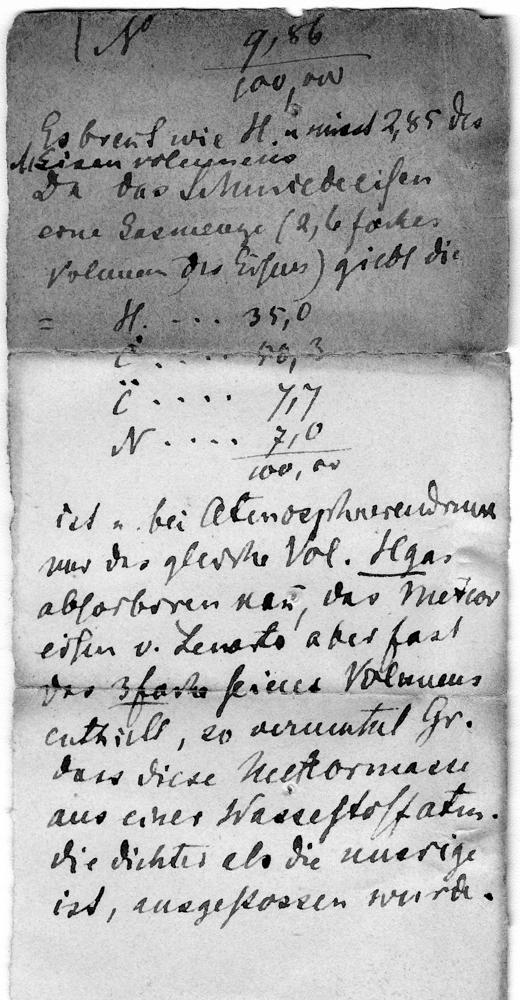 N° 9,86
100,00
Es brent wie H. u misst 2,85 des
Eisenvolumens
Da das Schmiedeeisen
eine Gasmenge (2,6 faches
Volumen des Eisens) giebt die
= H. ... 35,0
C̈ .... 50,3
C̈ .... 7,7
N .... 7,0
100,00
ist u. bei Atmosphaerendruck
nur das gleiche Vol. Hgas
absorbiren kañ, das Meteor
eisen v. Lenarto aber fast
das 3fache seines Volumens
enthielt, so vermuthet Gr.
dass diese Meteormasse
aus einer Wasserstoffatm.
die dichter als die unsrige
ist, ausgestossen wurde.